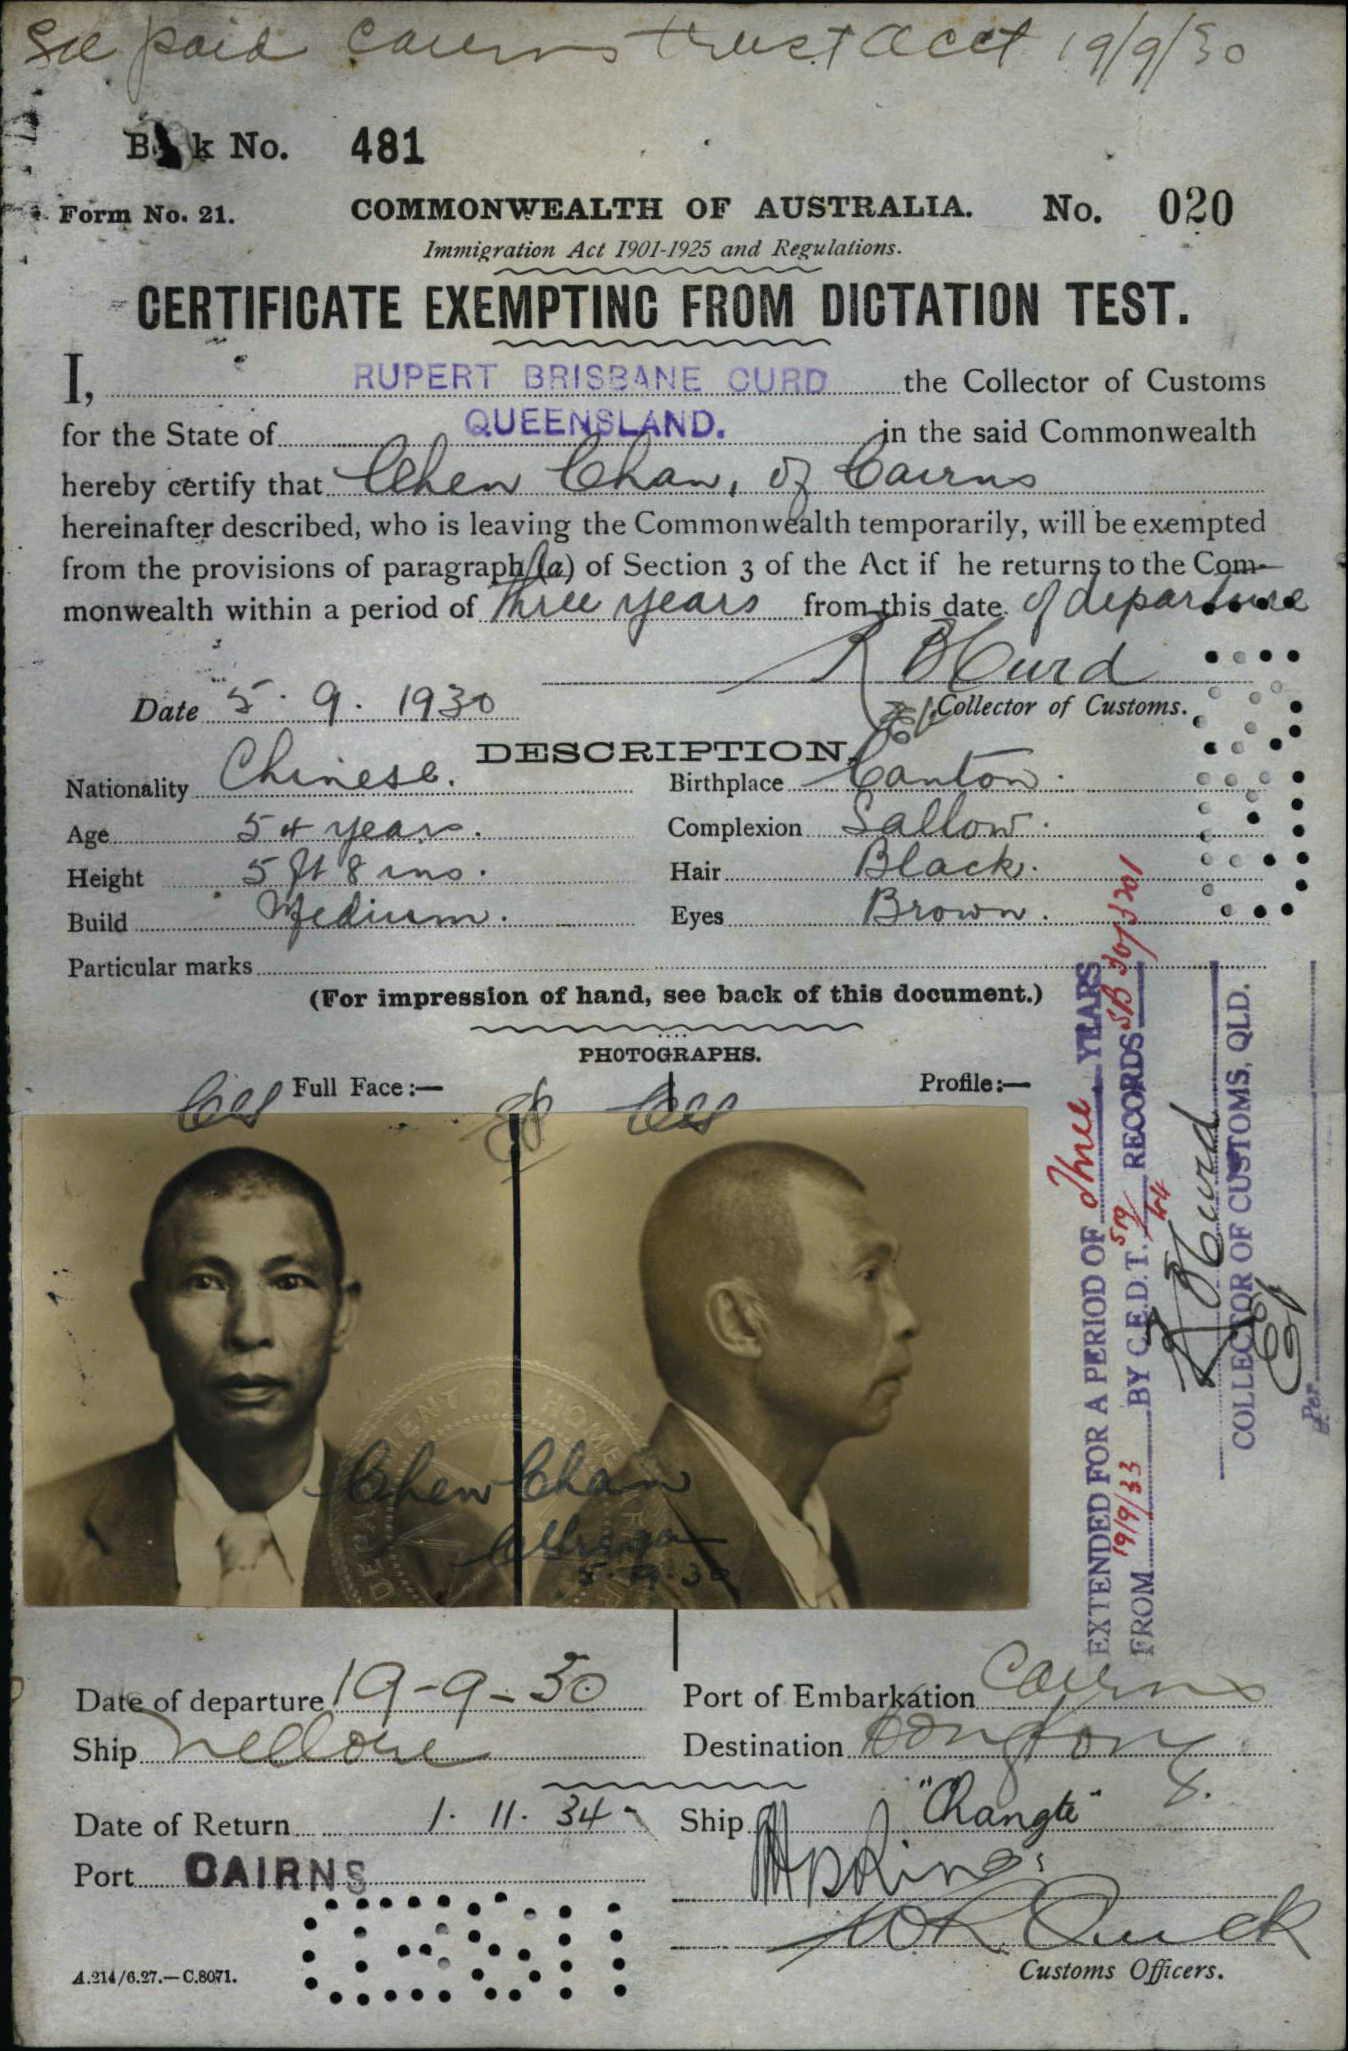 paid Cairns trust acct 19/9/30
B k No. 481
Form No. 21. COMMONWEALTH OF AUSTRALIA. No. 020
Immigration Act 1901-1925 and Regulations.
CERTIFICATE EXEMPTING FROM DICTATION TEST.
I, RUPERT BRISBANE CURD the Collector of Customs
for the State of QUEENSLAND. in the said Commonwealth
hereby certify that Chen Chan, of Cairns
hereinafter described, who is leaving the Commonwealth temporarily, will be exempted
from the provisions of paragraph (a) of Section 3 of the Act if he returns to the Com-
monwealth within a period of three years from this date of departure
R B Curd
Date 5. 9. 1930 Collector of Customs.
DESCRIPTION.
Nationality Chinese. Birthplace Canton.
Age 54 years. Complexion Sallow.
Height 5 ft 8 ins. Hair Black.
Build Medium. Eyes Brown.
Particular marks
(For impression of hand, see back of this document.)
PHOTOGRAPHS.
Full Face:— Profile:—
Chen Chan
5.9.30
EXTENDED FOR A PERIOD OF Three YEARS
FROM 19/9/33 BY C.E.D.T. RECORDS
R B Curd
COLLECTOR OF CUSTOMS, QLD.
Per
Date of departure 19-9-30 Port of Embarkation Cairns
Ship Nellore Destination Hongkong
Date of Return 1. 11. 34 Ship "Changte"
Port CAIRNS
Customs Officers.
A.214/6.27.—C.8071.